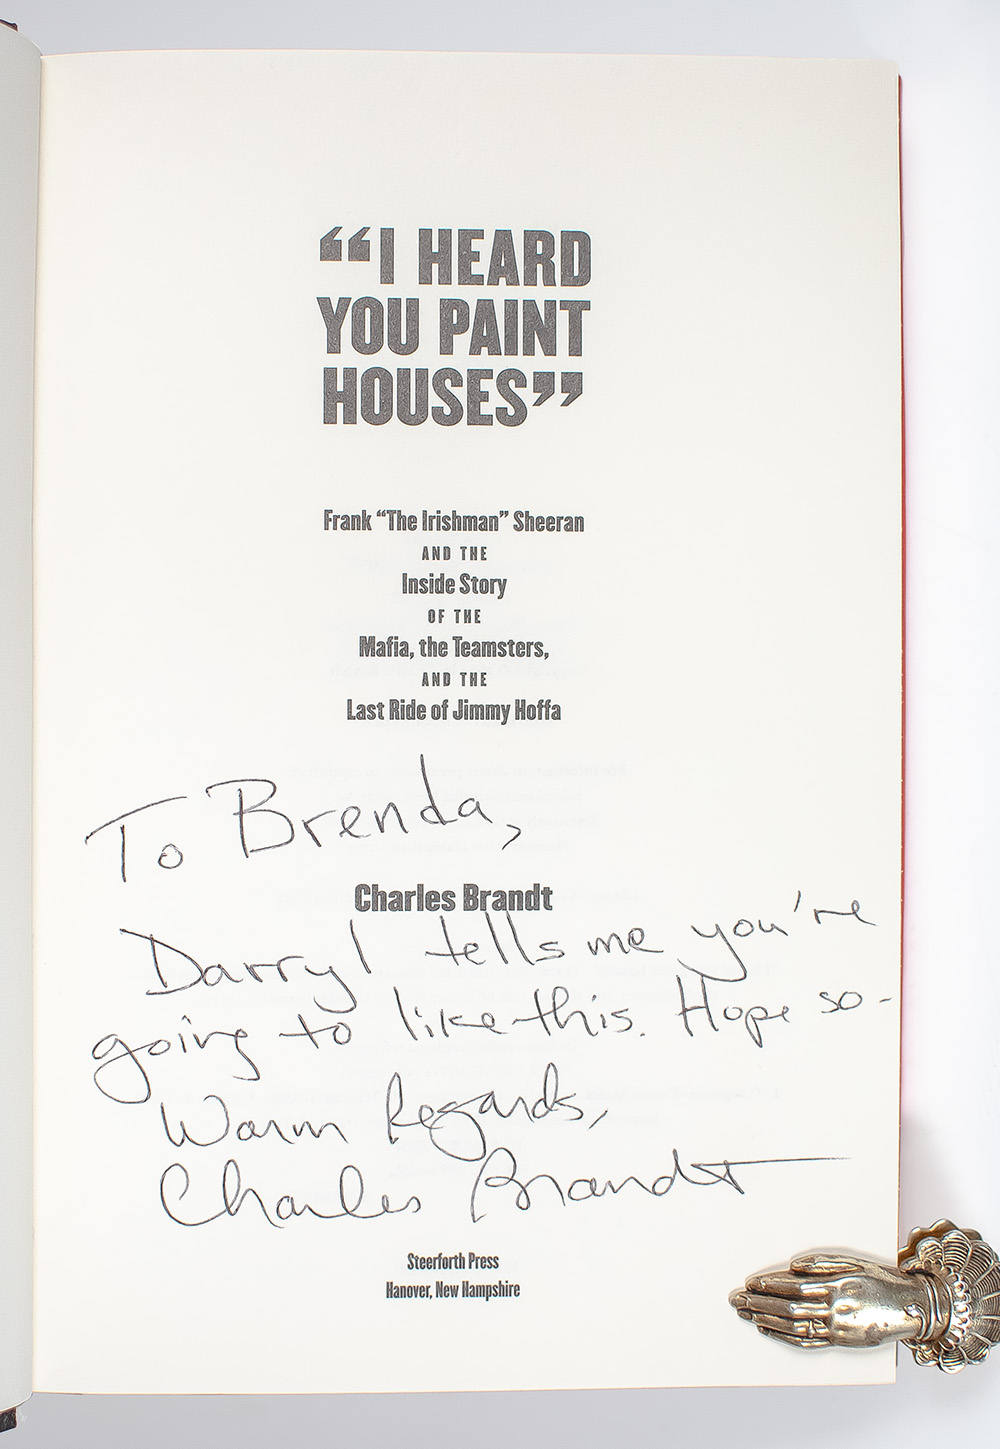 “I HEARD
YOU PAINT
HOUSES”
Frank “The Irishman” Sheeran
AND THE
Inside Story
OF THE
Mafia, the Teamsters,
AND THE
Last Ride of Jimmy Hoffa
To Brenda,
Charles Brandt
Darryl tells me you're
going to like this. Hope so-
Warm Regards,
Charles Brandt
Steerforth Press
Hanover, New Hampshire